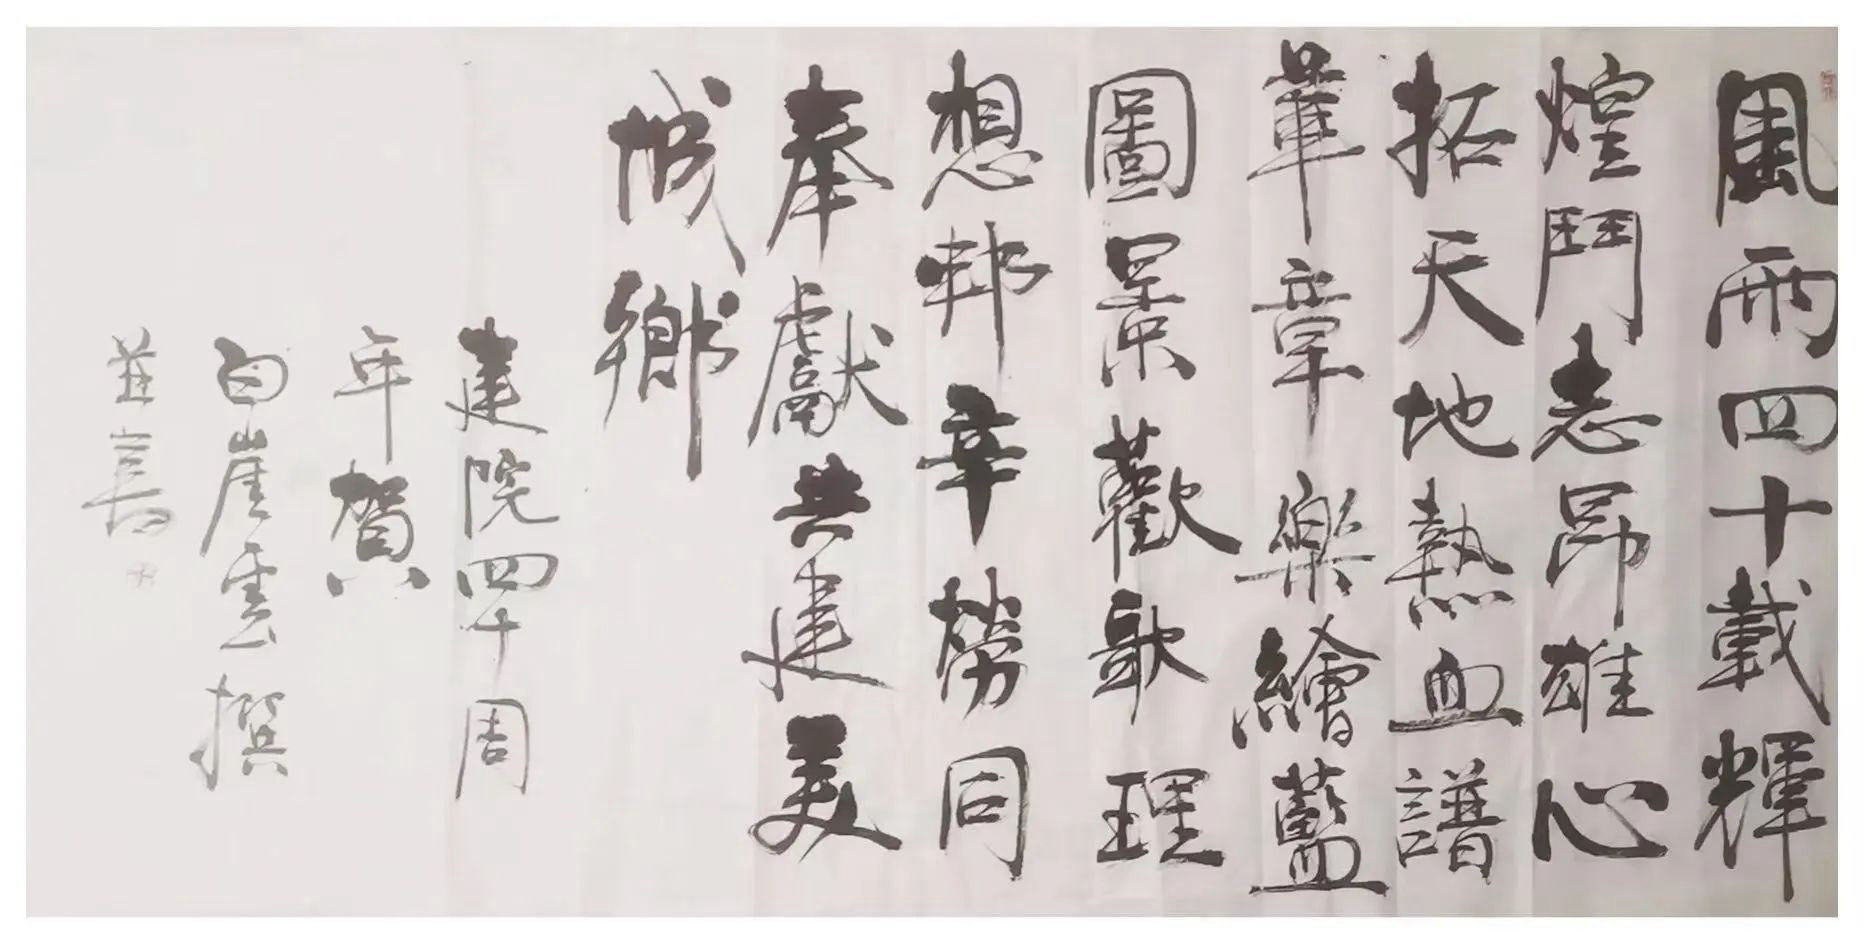 風雨四十載輝
煌鬥志昂雄心
拓天地熱血譜
華章樂繪藍
圖景歡歌理
想邦辛勞同
奉獻共建美
城鄉
建院四十周
年賀
白崖雲撰
並書